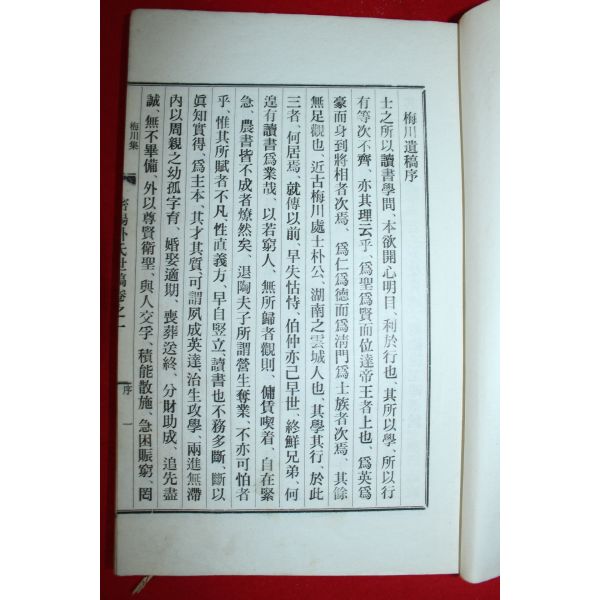 梅川遺稿序
士之所以讀書學問、本欲開心明目、利於行也、其所以學、所以行
有等次不齊、亦其理云乎、爲聖爲賢而位達帝王者上也、爲英爲
豪而身到將相者次焉、爲仁爲德而爲淸門爲士族者次焉、其餘
無足觀也、近古梅川處士朴公、湖南之雲城人也、其學其行、於此
三者、何居焉、就傅以前、早失怙恃、伯仲亦己早世、終鮮兄弟、何
遑有讀書爲業哉、以若窮人、無所歸者觀則、傭賃喫着、自在緊
急、農書皆不成者燎然矣、退陶夫子所謂營生奪業、不亦可怕者
乎、惟其所賦者不凡、性直義方、早自竪立、讀書也不務多斷、斷以
眞知實得、爲主本、其才其質、可謂夙成英達、治生攻學、兩進無滯
內以周親之幼孤字育、婚娶適期、喪葬送終、分財助成、追先盡
誠、無不畢備、外以尊賢衛聖、與人交孚、積能散施、急困賑窮、罔
梅川集
密陽朴氏世稿卷之一
序
一